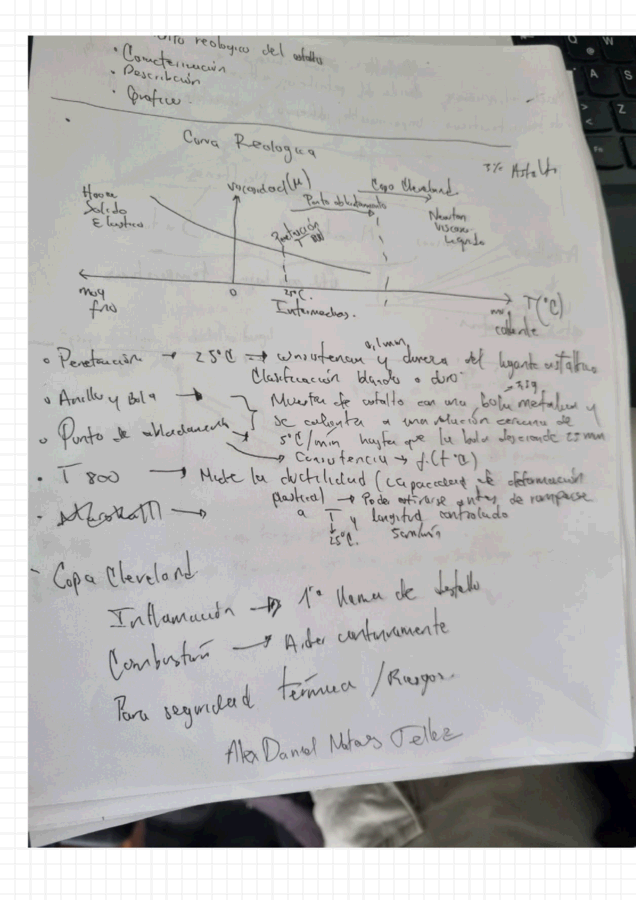 reologico del asfalto
• Caracterización
• Descripción
• Gráfico.
Curva Reologica
3% Asfalto
Hooke
Solido
Elastico
Viscosidad(μ)
Copa Cleveland
Punto ablandamiento
Penetración
T 800
Newton
Viscoso
Liquido
muy
frio
0
25°C.
Intermedios.
T(°C)
muy
caliente
• Penetración → 25°C → consistencia y dureza del ligante asfaltico
0,1mm
Clasificación blando o duro
• Anillo y Bola → Muestra de asfalto con una bola metalica y
3,5g
se calienta a una relación cercana de
• Punto de ablandamiento → 5°C/min hasta que la bola descienda 25mm
→ Consistencia → f.(t°C)
• T 800 → Mide la ductilidad (capacidad de deformación
plastica) → Poder estirarse antes de romperse
a T y longitud controlado
25°C. 5cm/min
- Copa Cleveland
Inflamación → 1ra llama de destello
Combustión → Arder continuamente
Para seguridad térmica / Riesgos.
Alex Daniel Matos Tellez